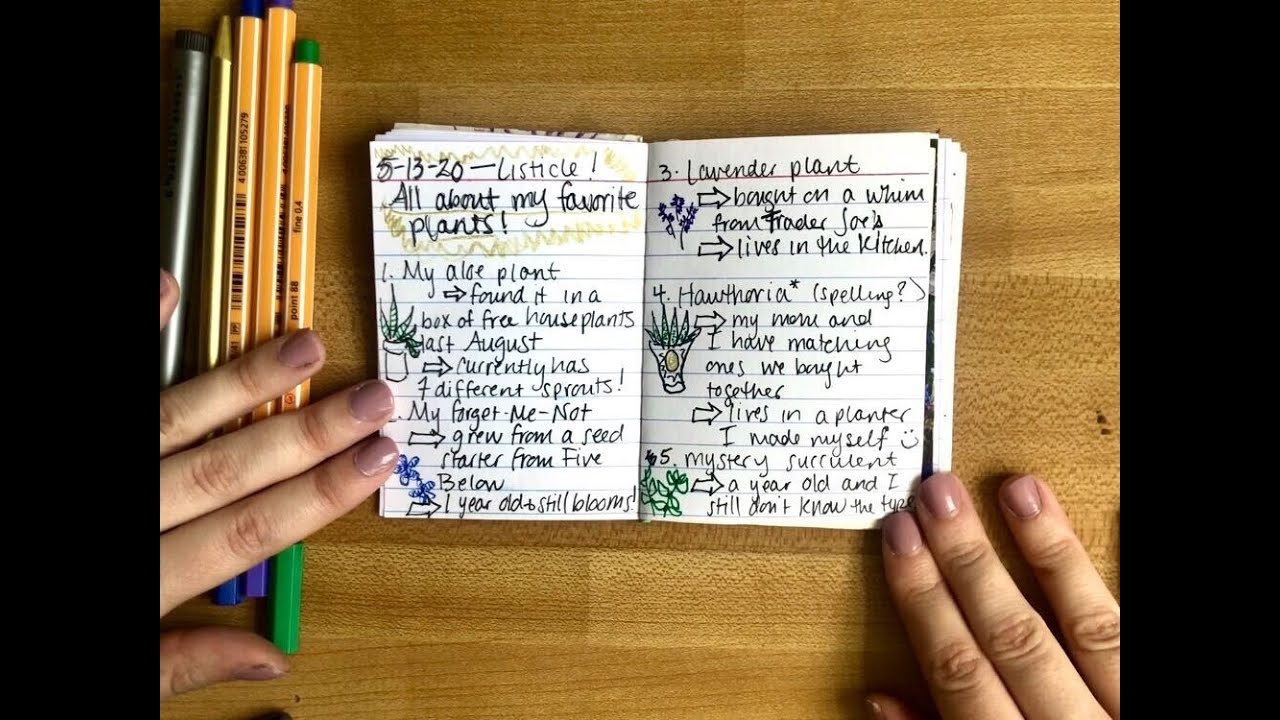 5-13-20 — Listicle!
All about my favorite
plants!
1. My aloe plant
⇨ found it in a
box of free houseplants
last August
⇨ currently has
7 different sprouts!
. My Forget-Me-Not
⇨ grew from a seed
starter from Five
Below
⇨ 1 year old + still blooms!
3. Lavender plant
⇨ bought on a whim
from Trader Joe's
⇨ lives in the kitchen.
4. Hawthoria* (spelling?)
⇨ my mom and
I have matching
ones we bought
together
⇨ lives in a planter
I made myself ☺
5. mystery succulent
⇨ a year old and I
still don't know the type
4 006381 105279
4 00638
fine 0,4
point 88